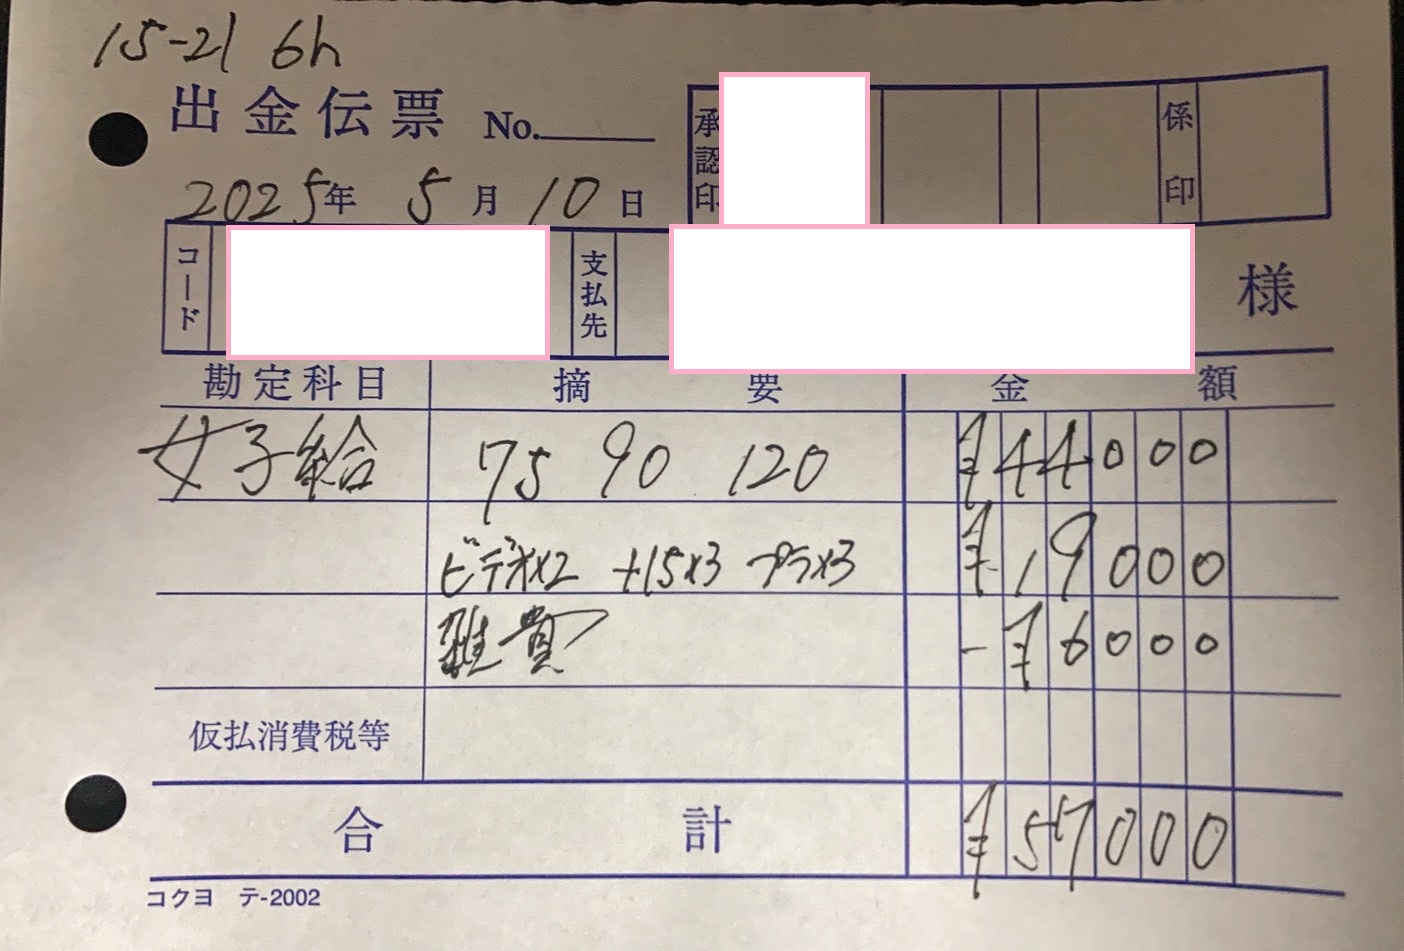 15-21 6h
出金伝票 No.
2025年 5月 10日
承認印 係印
コード 支払先 様
勘定科目 摘要 金額
女子給 75 90 120 ¥44000
ビデオx2 +15x3 プラx3 ¥19000
雑費 -¥6000
仮払消費税等
合計 ¥57000
コクヨ テ-2002